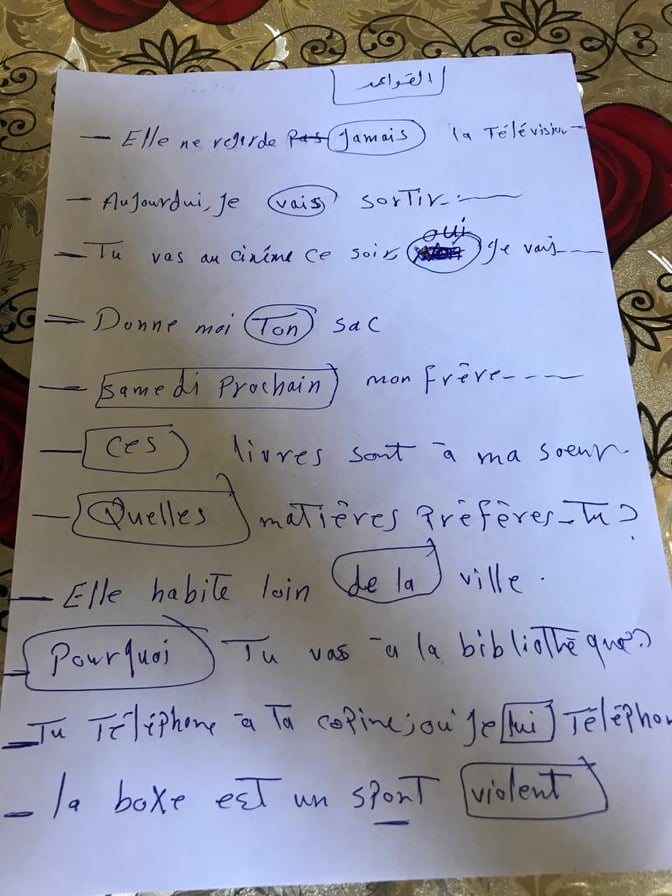 القواعد
— Elle ne regarde pas Jamais la Télévision
— Aujourdui, Je vais sortir.
— Tu vas au cinéma ce soir, oui Je vais
— Donne moi Ton sac
— samedi Prochain mon frère
— ces livres sont à ma soeur
— Quelles matières Préfères-Tu?
— Elle habite loin de la ville.
— Pourquoi Tu vas à la bibliothèque?
— Tu Téléphone à Ta copine, oui Je lui Téléphon
— la boxe est un spont violent